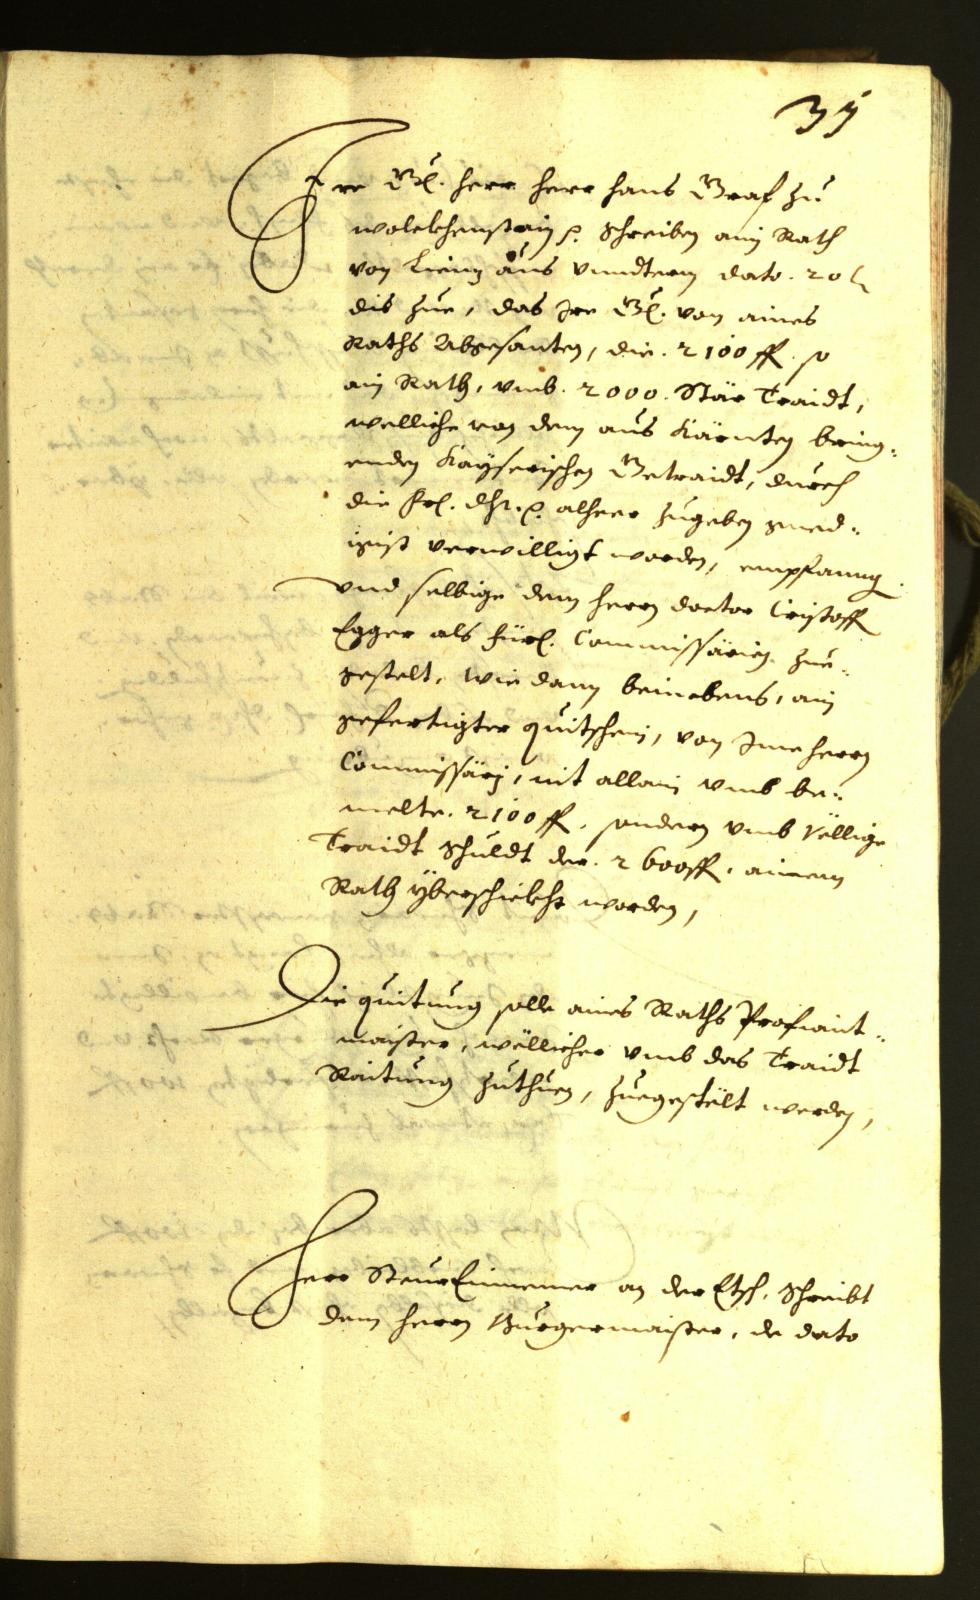 35
Ire Gl. herr herr hans Graf zu
wolckhenstain p. Schreiben ain Rath
von Lienz aus vnndterm dato. 20
dis zue, das Ire Gl. von aines
Raths Abgesanten, die. 2100 ff. so
ain Rath, vmb. 2000. Stär Traidt,
welliche von dem aus Kärnten bring„
enden Kayserischen Getraidt, durch
die Frl. Dhl. p. alheer zugeben gned„
igist verwilligt worden, empfanng
vnd selbige dem herrn doctor Cristoff
Egger als fürl. Commissärien zue„
gestelt, wie dann beinebens, ain
gefertigter quitschein, von Ime herrn
Commissärj, nit allain vmb be„
melte. 2100 ff. sondern vmb völlige
Traidt schuldt der. 2600 ff. ainem
Rath yberschickht worden,
Die quittung solle aines Raths Profiant„
maister, wellicher vmb das Traidt
Raitung zuthuen, zuegestelt werden,
Herr SteurEinnemer an der Etsch, Schreibt
dem herrn Burgermaister, de dato